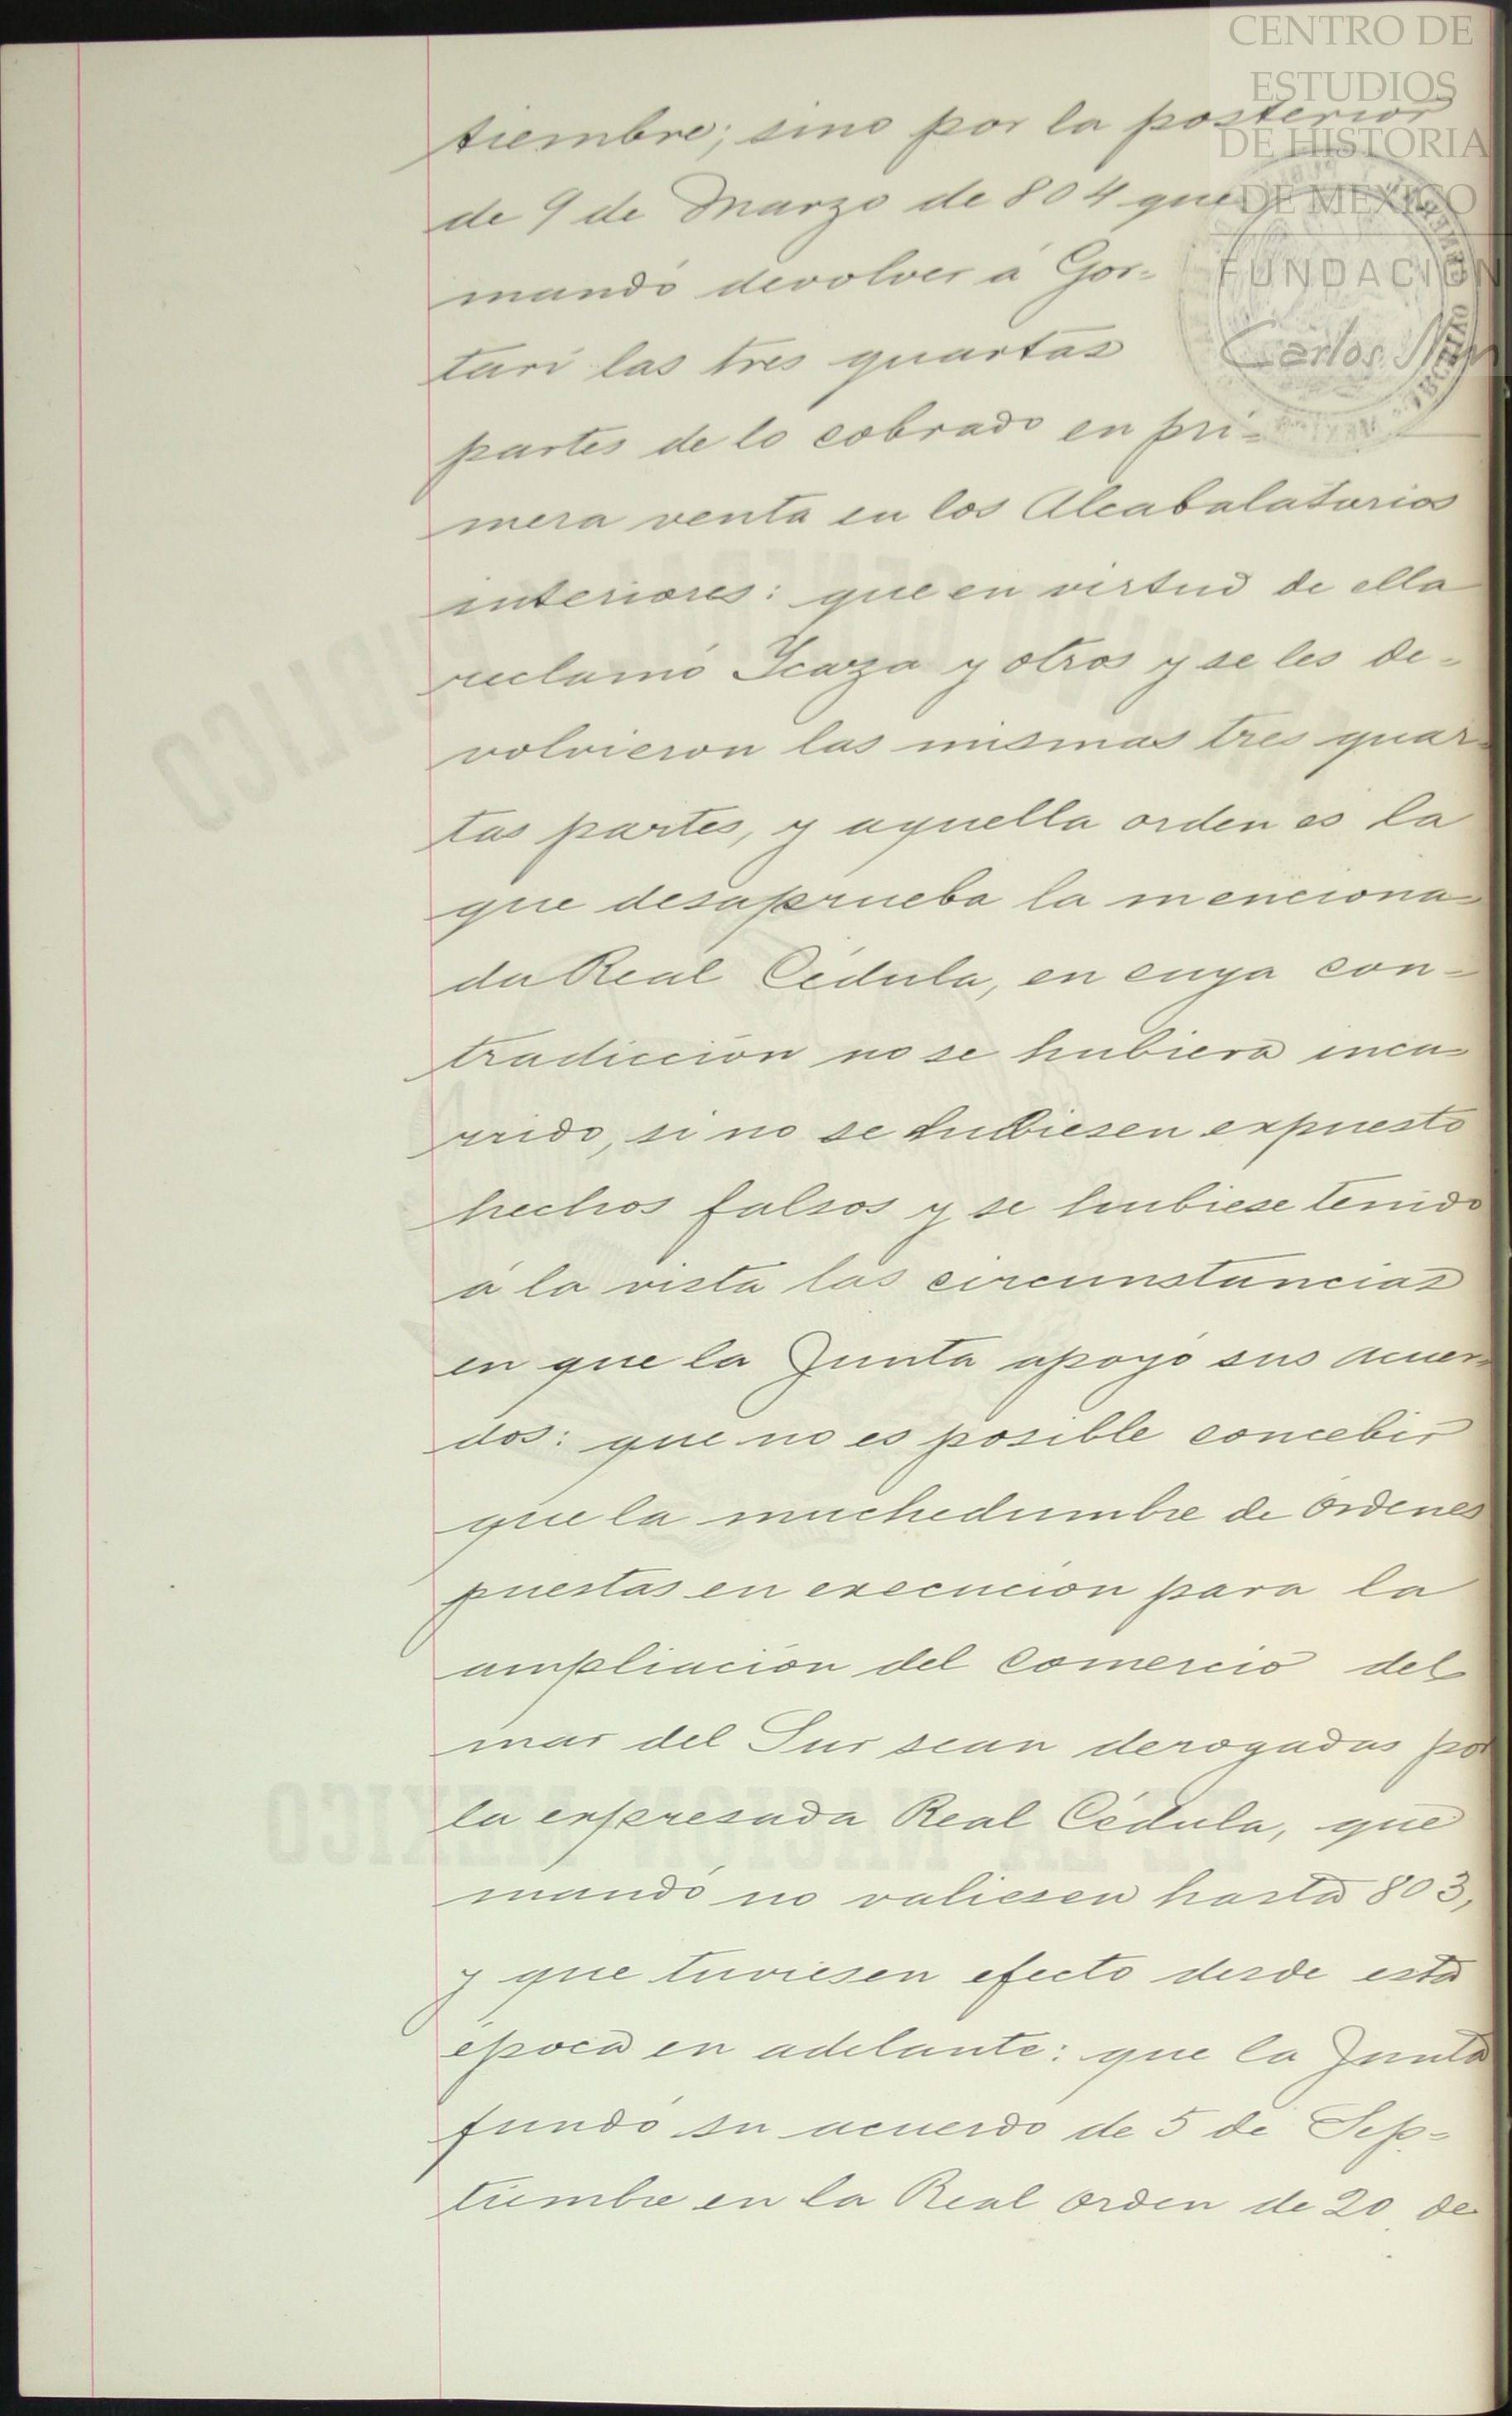 CENTRO DE
ESTUDIOS
DE HISTORIA
DE MEXICO
FUNDACION
Carlos
ARCHIVO
tiembre; sino por la posterior
de 9 de Marzo de 804 que
mandó devolver á Gor=
tari las tres quartas
partes de lo cobrado en pri=
mera venta en los Alcabalatorios
interiores: que en virtud de ella
reclamó Icaza y otros y se les de=
volvieron las mismas tres quar=
tas partes, y aquella orden es la
que desaprueba la menciona=
da Real Cédula, en cuya con=
tradicción no se hubiera incu=
rrido, si no se hubiesen expuesto
hechos falsos y se hubiese tenido
á la vista las circunstancias
en que la Junta apoyó sus acuer=
dos: que no es posible concebir
que la muchedumbre de órdenes
puestas en execución para la
ampliación del Comercio del
mar del Sur sean derogadas por
la expresada Real Cédula, que
mandó no valiesen hasta 803,
y que tuviesen efecto desde esta
época en adelante: que la Junta
fundó su acuerdo de 5 de Sep=
tiembre en la Real orden de 20 de